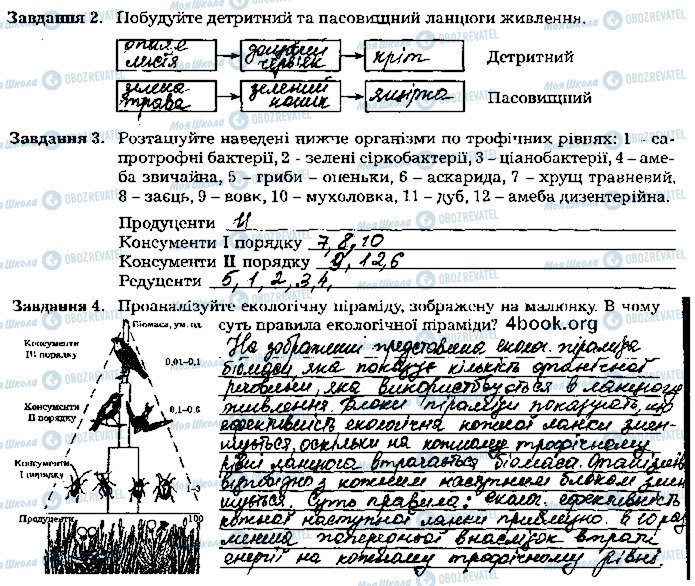 Завдання 2. Побудуйте детритний та пасовищний ланцюги живлення.
опале листя дощовий черв'як кріт Детритний
зелена трава зелений коник ящірка Пасовищний
Завдання 3. Розташуйте наведені нижче організми по трофічних рівнях: 1 - са-
протрофні бактерії, 2 - зелені сіркобактерії, 3 – ціанобактерії, 4 – аме-
ба звичайна, 5 – гриби – опеньки, 6 – аскарида, 7 – хрущ травневий,
8 – заєць, 9 – вовк, 10 – мухоловка, 11 – дуб, 12 – амеба дизентерійна.
Продуценти 11
Консументи I порядку 7, 8, 10
Консументи II порядку 9, 12, 6
Редуценти 5, 1, 2, 3, 4,
Завдання 4. Проаналізуйте екологічну піраміду, зображену на малюнку. В чому
суть правила екологічної піраміди? 4book.org
Біомаса, ум. од.
Консументи
III порядку
0,01–0,1
Консументи
II порядку
0,1–0,6
Консументи
I порядку
Продуценти
100
На зображенні представлена еколог. піраміда
біомаси, яка показує кількість органічної
речовини, яка використовується в ланцюгу
живлення. Блоки піраміди показують, що
ефективність екологічна кожної ланки змен-
шується, оскільки на кожному трофічному
рівні ланцюга втрачається біомаса.
відповідно з кожним наступним блоком змен
шується. Суть правила: еколог. ефективність
кожної наступної ланки приблизно в 10 раз
менша попередньої внаслідок втрати
енергії на кожному трофічному рівні